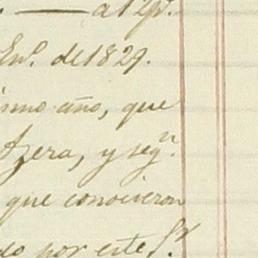 Enº. de 1829.
ismo año, que
Azera, y segⁿ.
que conocieron
do por este